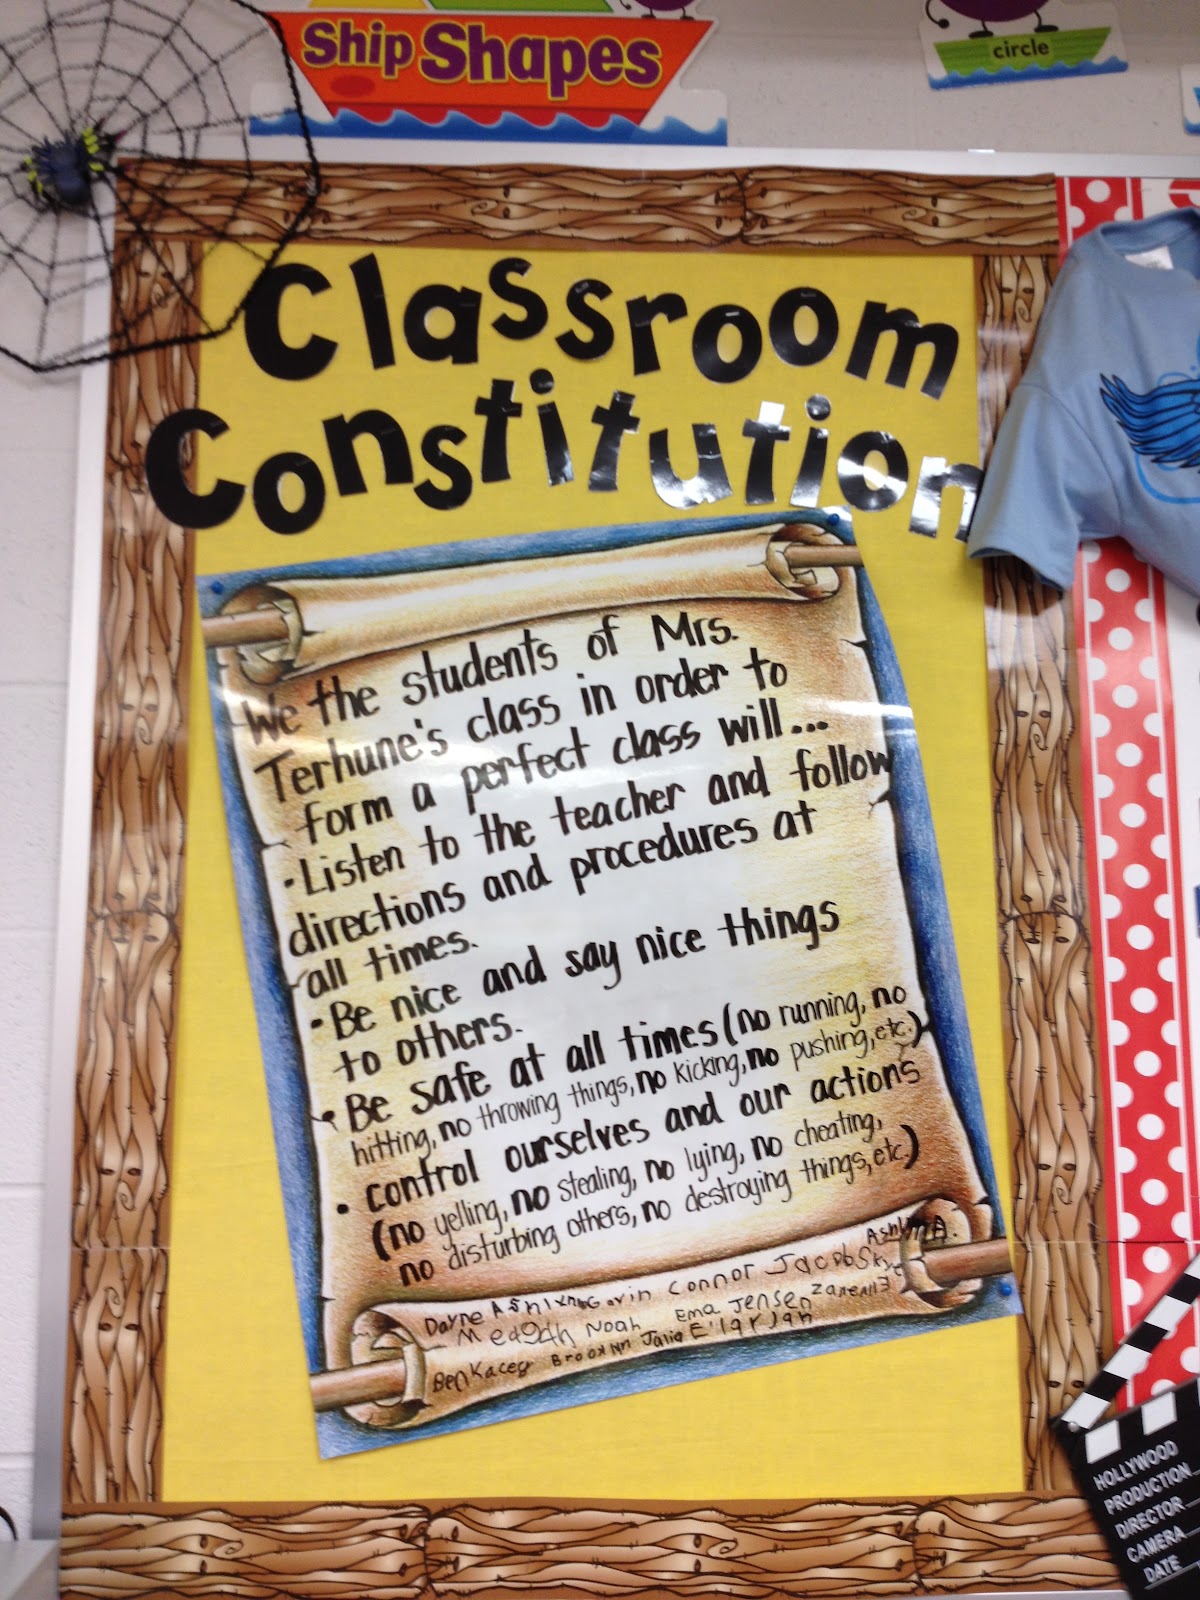 Ship Shapes
circle
Classroom
Constitution
We the students of Mrs.
Terhune's class in order to
form a perfect class will...
• Listen to the teacher and follow
directions and procedures at
all times.
• Be nice and say nice things
to others.
• Be safe at all times (no running, no
hitting, no throwing things, no kicking, no pushing, etc.)
• control ourselves and our actions
(no yelling, no stealing, no lying, no cheating,
no disturbing others, no destroying things, etc.)
Ashlyn A.
Dayne Ashlynn Gavin Connor Jacob Skye
Meagan Noah Ema Jensen
Ben Kacey Brooklyn Jalia E'lar Jah
HOLLYWOOD
PRODUCTION
DIRECTOR
CAMERA
DATE